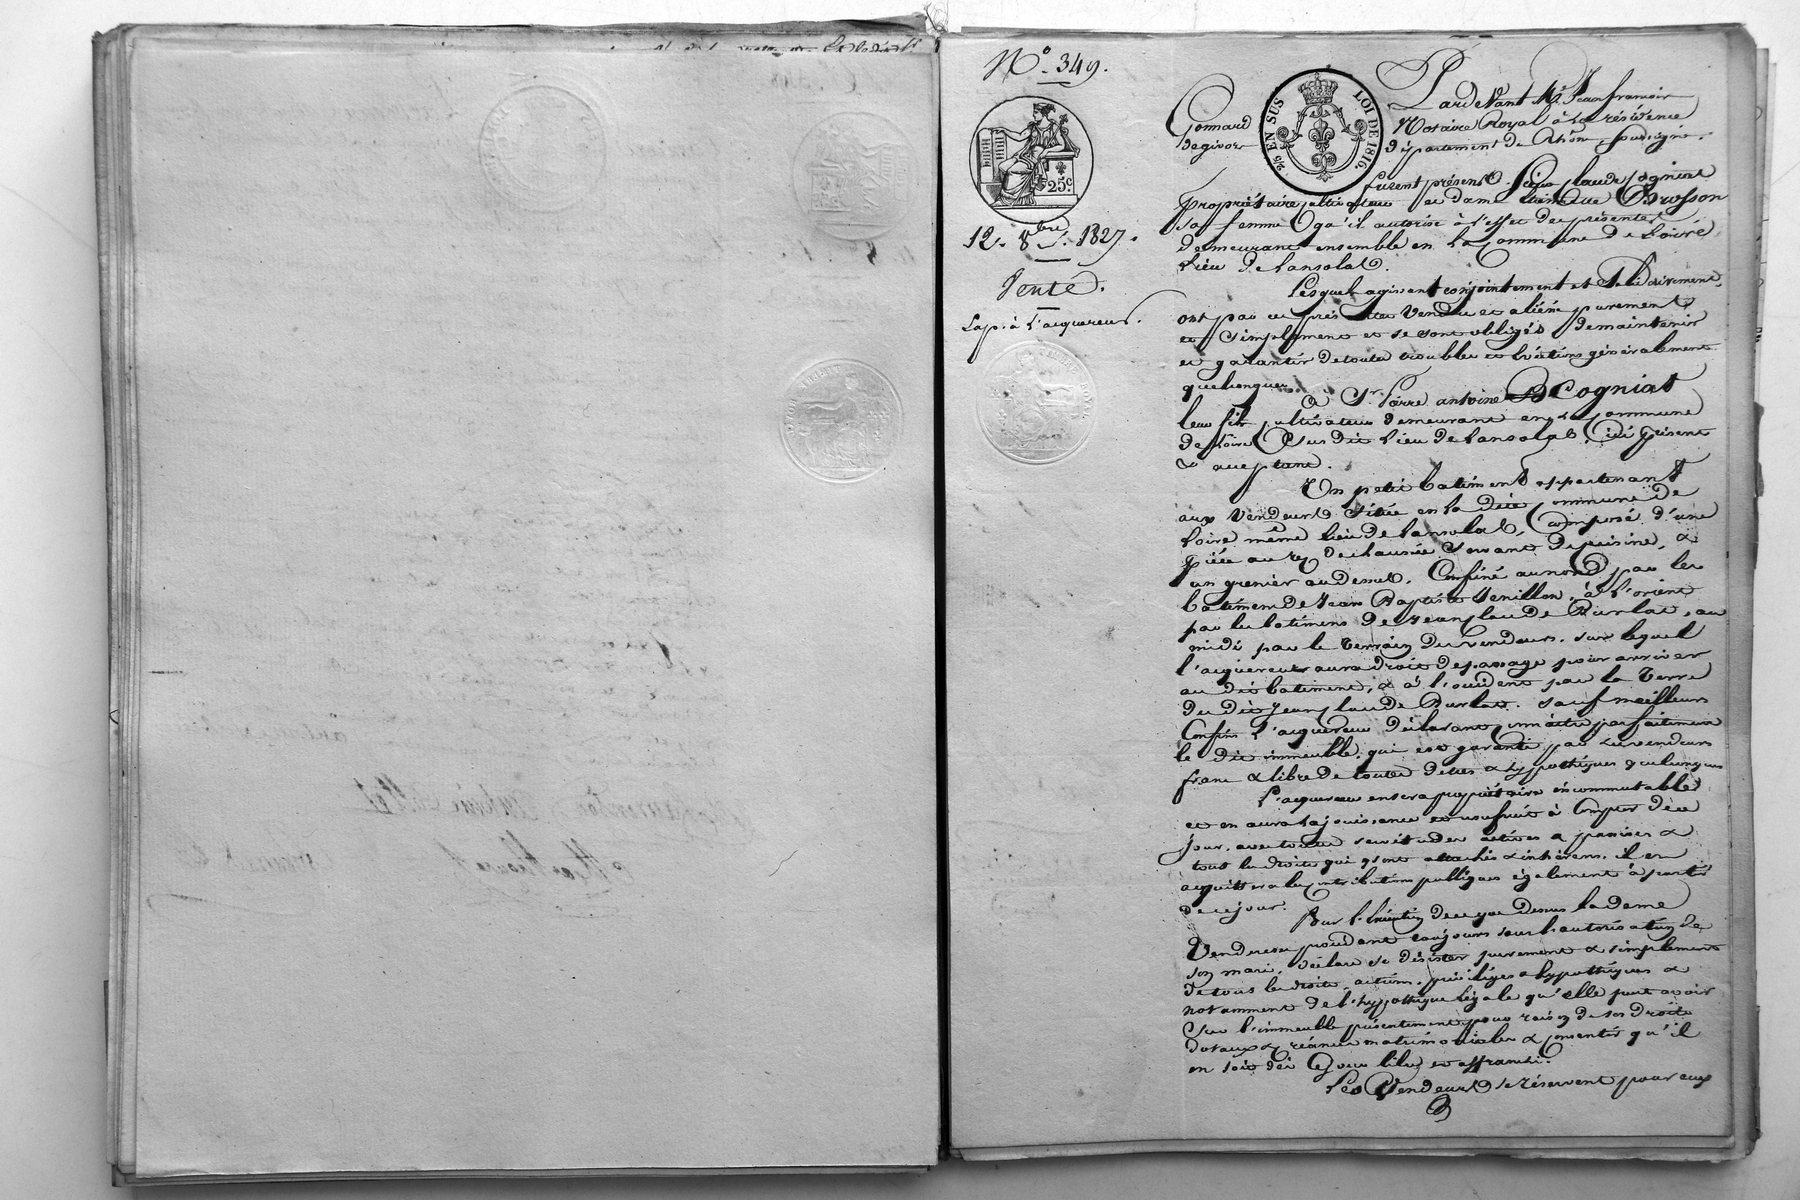 N.º 349.
25.c
12. 8bre 1827.
Vente.
Exp. à l'acquereur.
2/5 EN SUS LOI DE 1816.
Pardevant M.e Jean françois
Gonnard Notaire Royal à la résidence
de givors département du Rhône, soussigné.
furent présents Sieur Claude Cogniat
propriétaire cultivateur et dame Brosson
sa femme qu'il autorise à l'effet des présentes
demeurant ensemble en la Commune de Loire
lieu de Lansolat.
Lesquels agissant conjointement et solidairement,
ont par ces présentes vendu et aliéné purement
et simplement et se sont obligés de maintenir
et garantir de toutes troubles et évictions généralement
quelconques.
à Sr. Pierre antoine Cogniat
leur fils cultivateur demeurant en la commune
de Loire susdit lieu de Lansolat, ici présent
& acceptant.
Un petit batiment appartenant
aux vendeurs située en la dite commune de
Loire même lieu de Lansolat, Composé d'une
pièce au rez de chaussée servant de cuisine, &
un grenier au dessus. Confiné au nord par les
batimens de Jean Baptiste Venillon, à l'orient
par les batimens de Jean Claude Burlat, au
midi par le terrain des vendeurs, sur lequel
l'acquereur aura droit de passage pour arriver
au dit batiment, & à l'occident par la terre
du dit Jean Claude Burlat. sauf meilleurs
Confins l'acquereur déclarant connaître parfaitement
le dit immeuble, qui est garanti par les vendeurs
franc & libre de toutes dettes & hypothèques quelconques
L'acquereur en sera propriétaire incommutable
et en aura la jouissance et usufruit à Compter de ce
jour, avec toutes servitudes actives & passives &
tous les droits qui y sont attachés & inhérens. il en
acquittera les contributions publiques également à partir
de ce jour.
Pour l'exécution de ce que dessus la dame
Venderesse procédant toujours sous l'autorisation de
son mari, déclare se désister purement & simplement
de tous les droits, actions, privilèges & hypothèques &
notamment de l'hypothèque légale qu'elle peut avoir
Sur l'immeuble présentement pour raison de ses droits
dotaux & créances matrimoniales & consentir qu'il
en soit dès Ce jour libre et affranchi.
Les Vendeurs se réservent pour eux